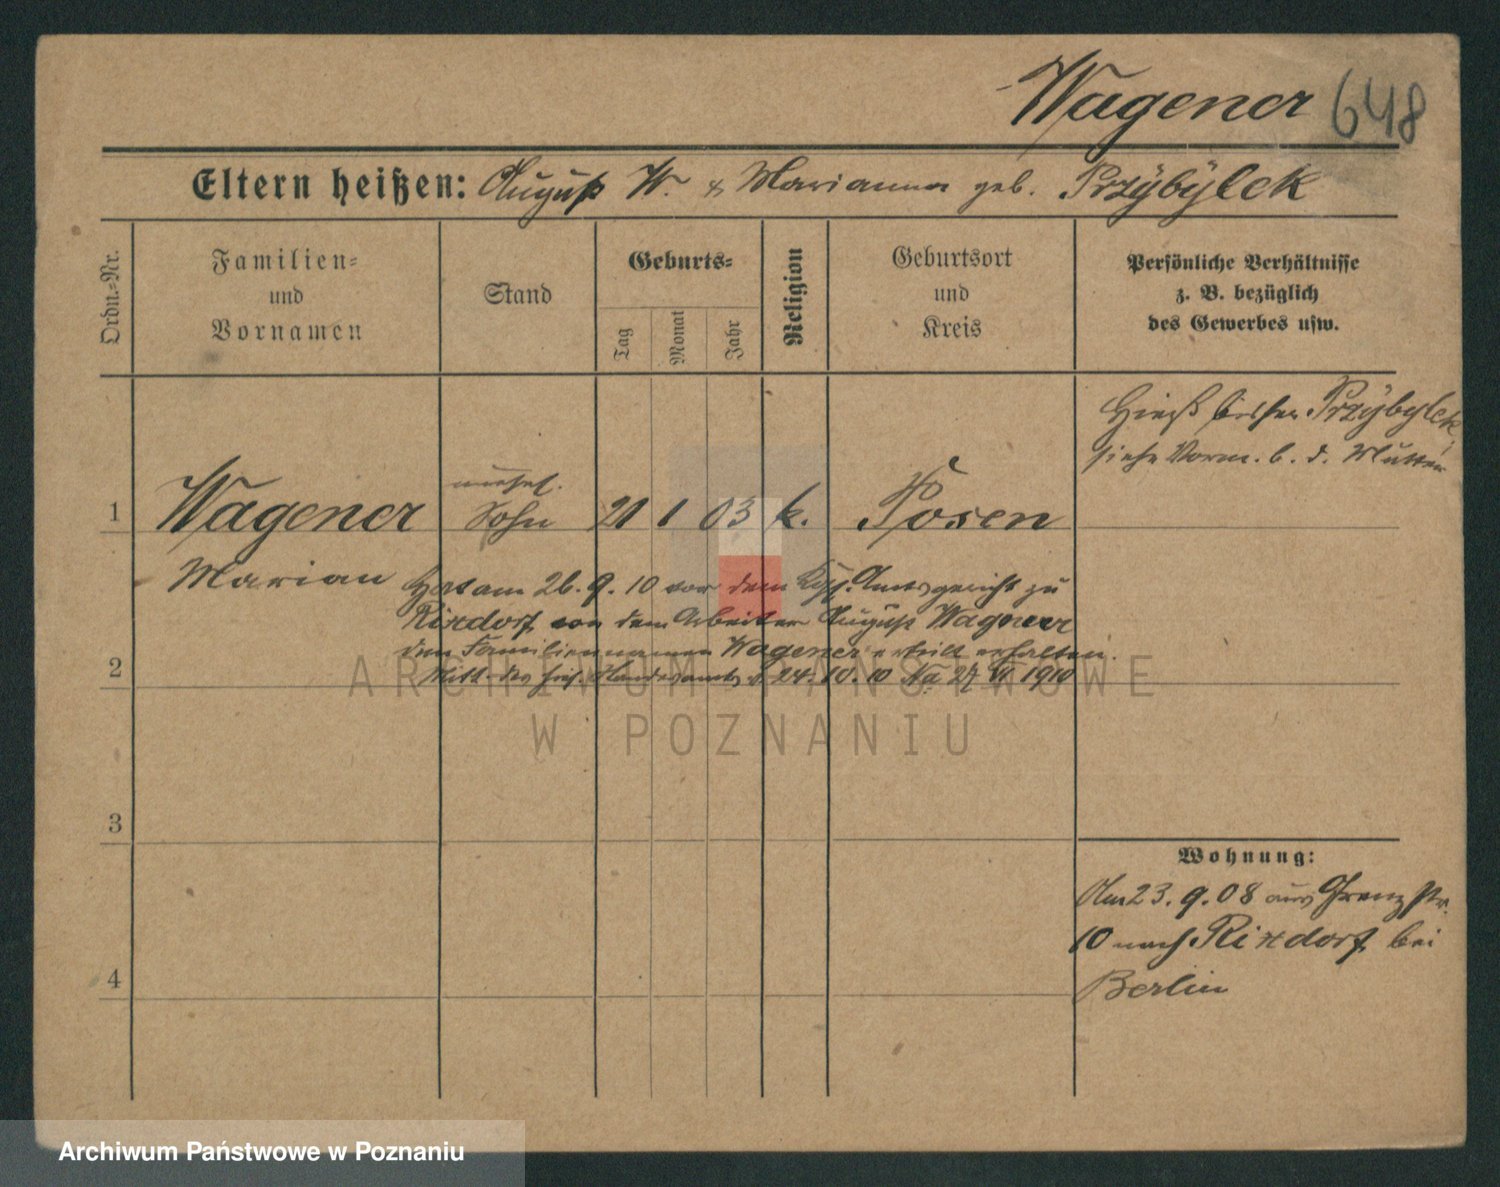 Wagener 648
Eltern heißen: August W. & Marianna geb. Przÿbÿlek
Ordn.-Nr.
Familien-
und
Vornamen
Stand
Geburts-
Tag
Monat
Jahr
Religion
Geburtsort
und
Kreis
Persönliche Verhältnisse
z. B. bezüglich
des Gewerbes usw.
Hieß bisher Przÿbylek
siehe Vorm. b. d. Mutter
unehel.
1 Wagener Sohn 21 1 03 k. Posen
Marian
Hat am 26. 9. 10 vor dem Kgl. Amtsgericht zu
Rixdorf von dem Arbeiter August Wagener
den Familiennamen Wagener erteilt erhalten.
2
Mitt. des hies. Standesamts v. 24. 10. 10 No 27 VI 1910
ARCHIWUM PAŃSTWOWE
W POZNANIU
3
Wohnung:
Am 23. 9. 08 aus Grenzstr.
10 nach Rixdorf bei
4
Berlin
Archiwum Państwowe w Poznaniu